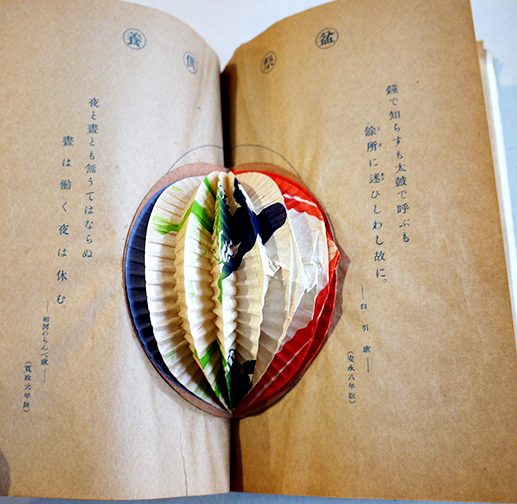 盆
祭
供
養
鐘で知らすも太鼓で呼ぶも
餘所に迷ひしわし故に。
――臼引歌――
(安永八年版)
夜と晝とも無うてはならぬ
晝は働く夜は休む。
(寛政元年版)